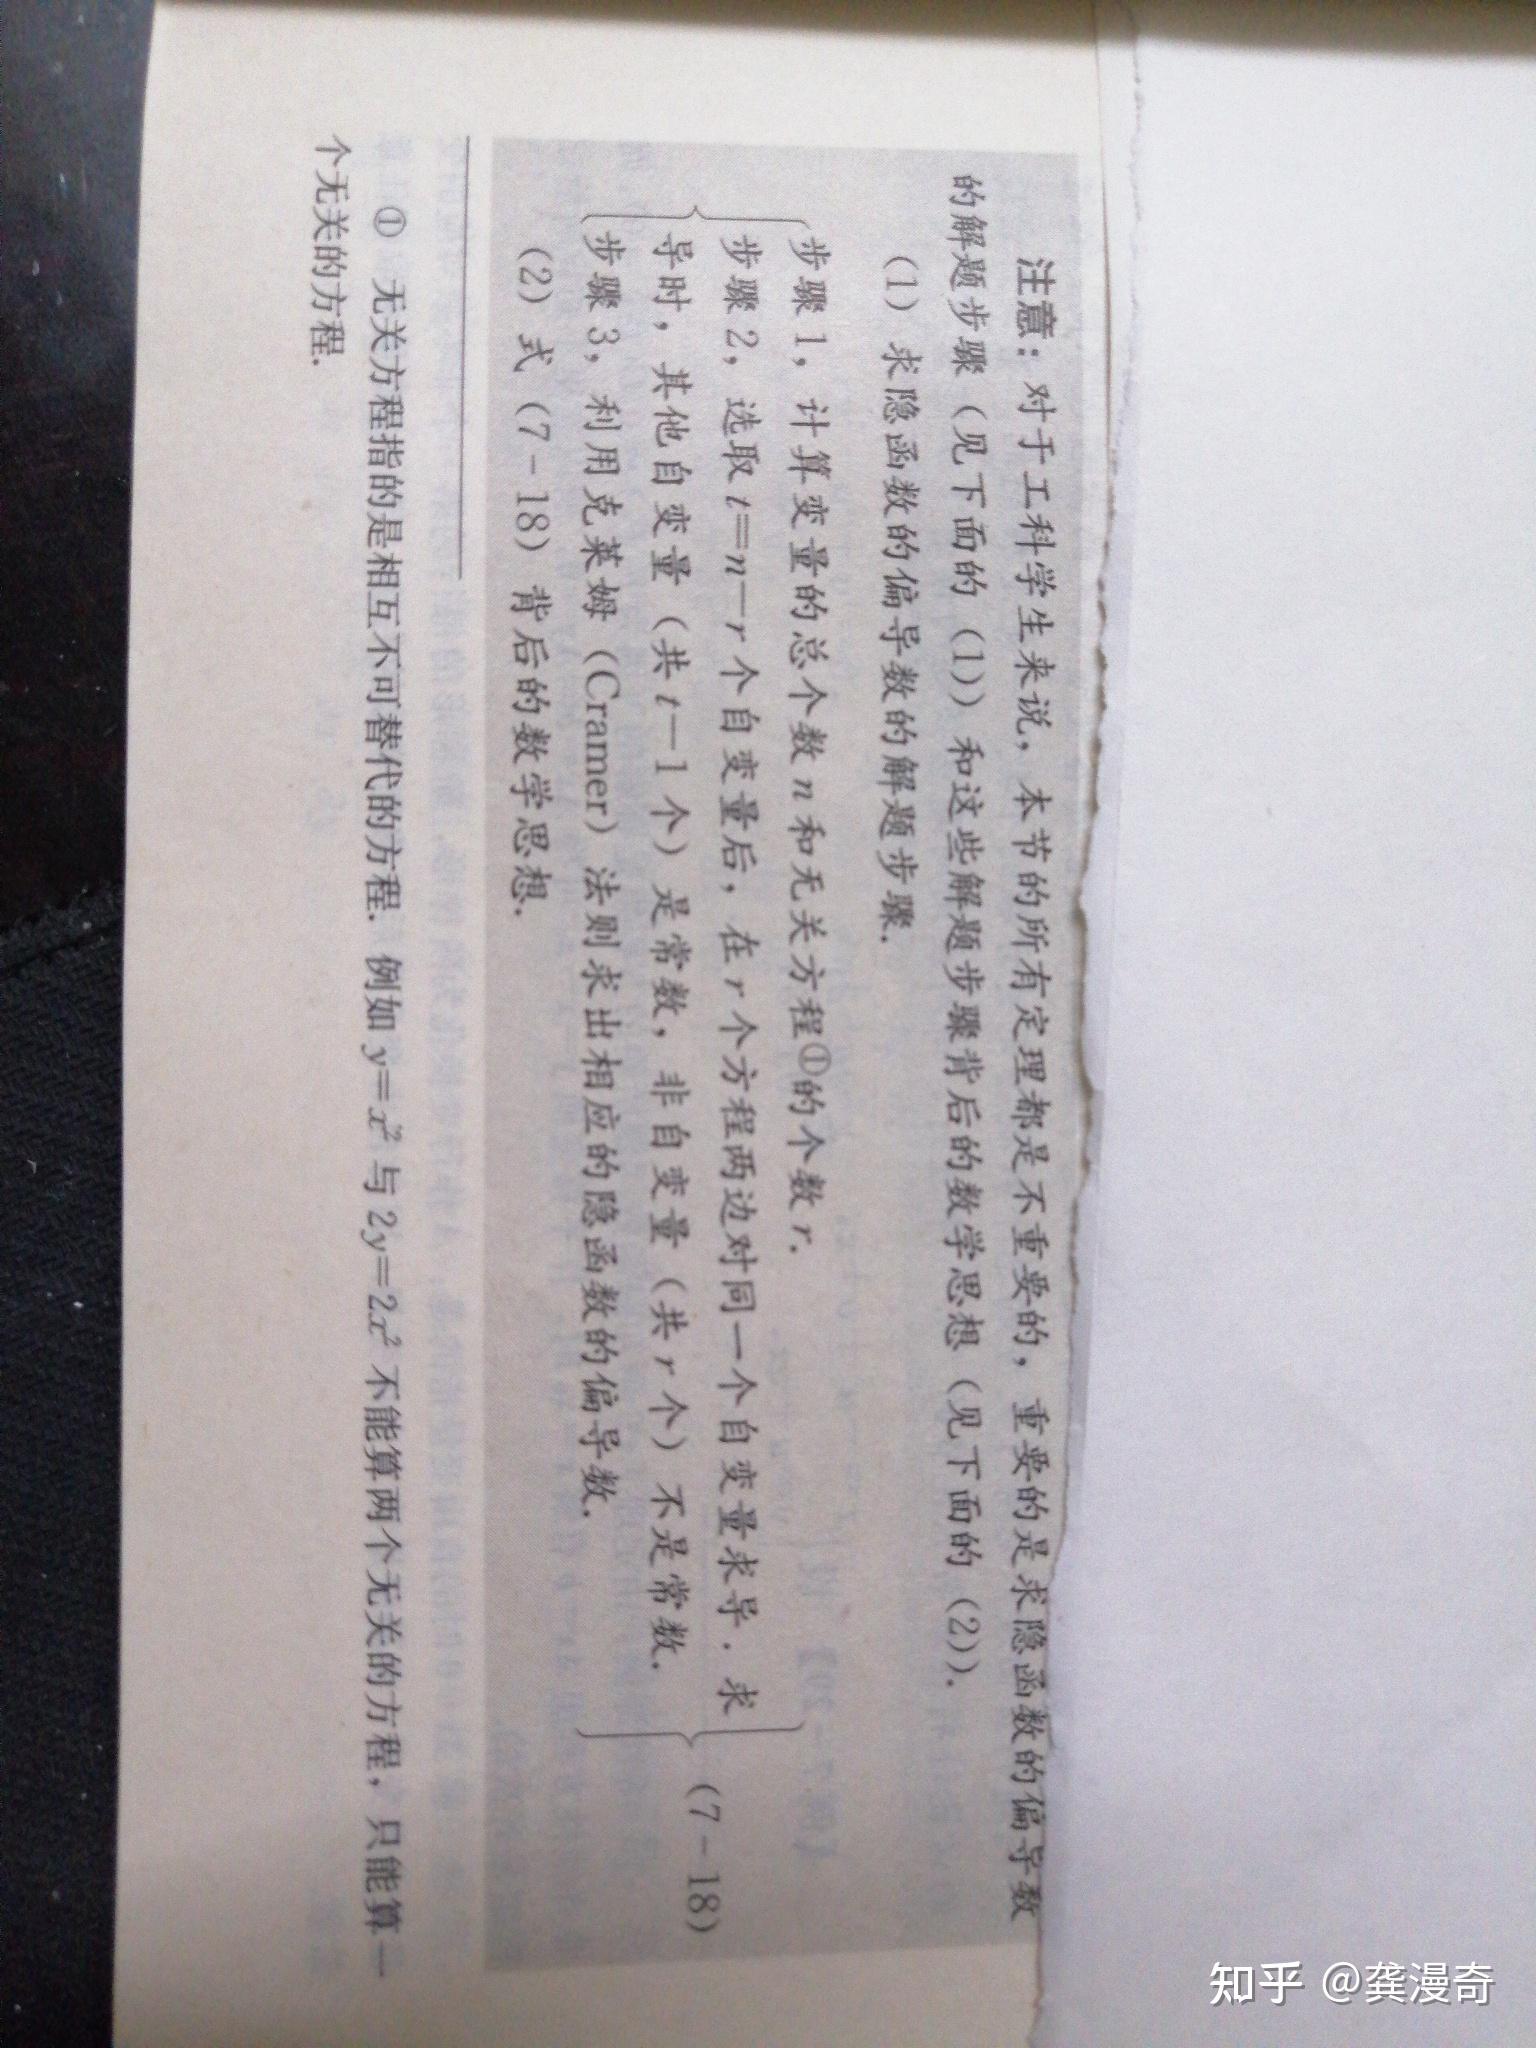 注意：对于工科学生来说，本节的所有定理都是不重要的，重要的是求隐函数的偏导数
的解题步骤（见下面的（1））和这些解题步骤背后的数学思想（见下面的（2））.
（1）求隐函数的偏导数的解题步骤.
步骤1，计算变量的总个数n和无关方程①的个数r.
步骤2，选取t=n-r个自变量后，在r个方程两边对同一个自变量求导．求
导时，其他自变量（共t-1个）是常数，非自变量（共r个）不是常数.
步骤3，利用克莱姆（Cramer）法则求出相应的隐函数的偏导数.
(7-18)
（2）式（7-18）背后的数学思想.
① 无关方程指的是相互不可替代的方程. 例如y=x²与2y=2x²不能算两个无关的方程，只能算一
个无关的方程.
知乎 @龚漫奇